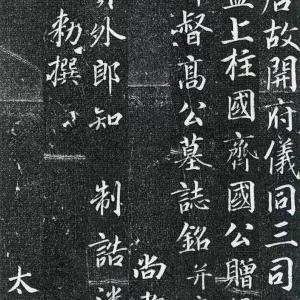 故開府儀同三司
監上柱國齊國公贈
督高公墓誌銘并
尚
外郎知 制誥潘
勅撰
太